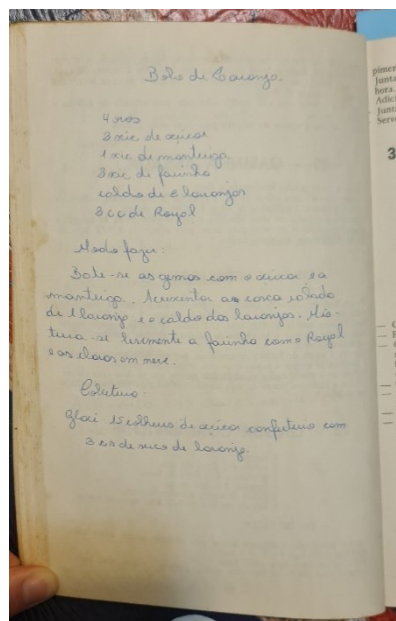 Bolo de Laranja
4 ovos
3 xic de açúcar
1 xic de manteiga
3 xic de farinha
caldo de 2 laranjas
3 cc de Royal
Modo fazer:
Bate-se as gemas com o açúcar e a
manteiga. Acrescentar a casca ralada
de 1 laranja e o caldo das laranjas. Mis-
tura-se levemente a farinha com o Royal
e as claras em neve.
Cobertura:
Glacê 15 colheres de açúcar confeiteiro com
3 cs de suco de laranja.
pimen
Junta
hora.
Adici
Junt
Serv
3